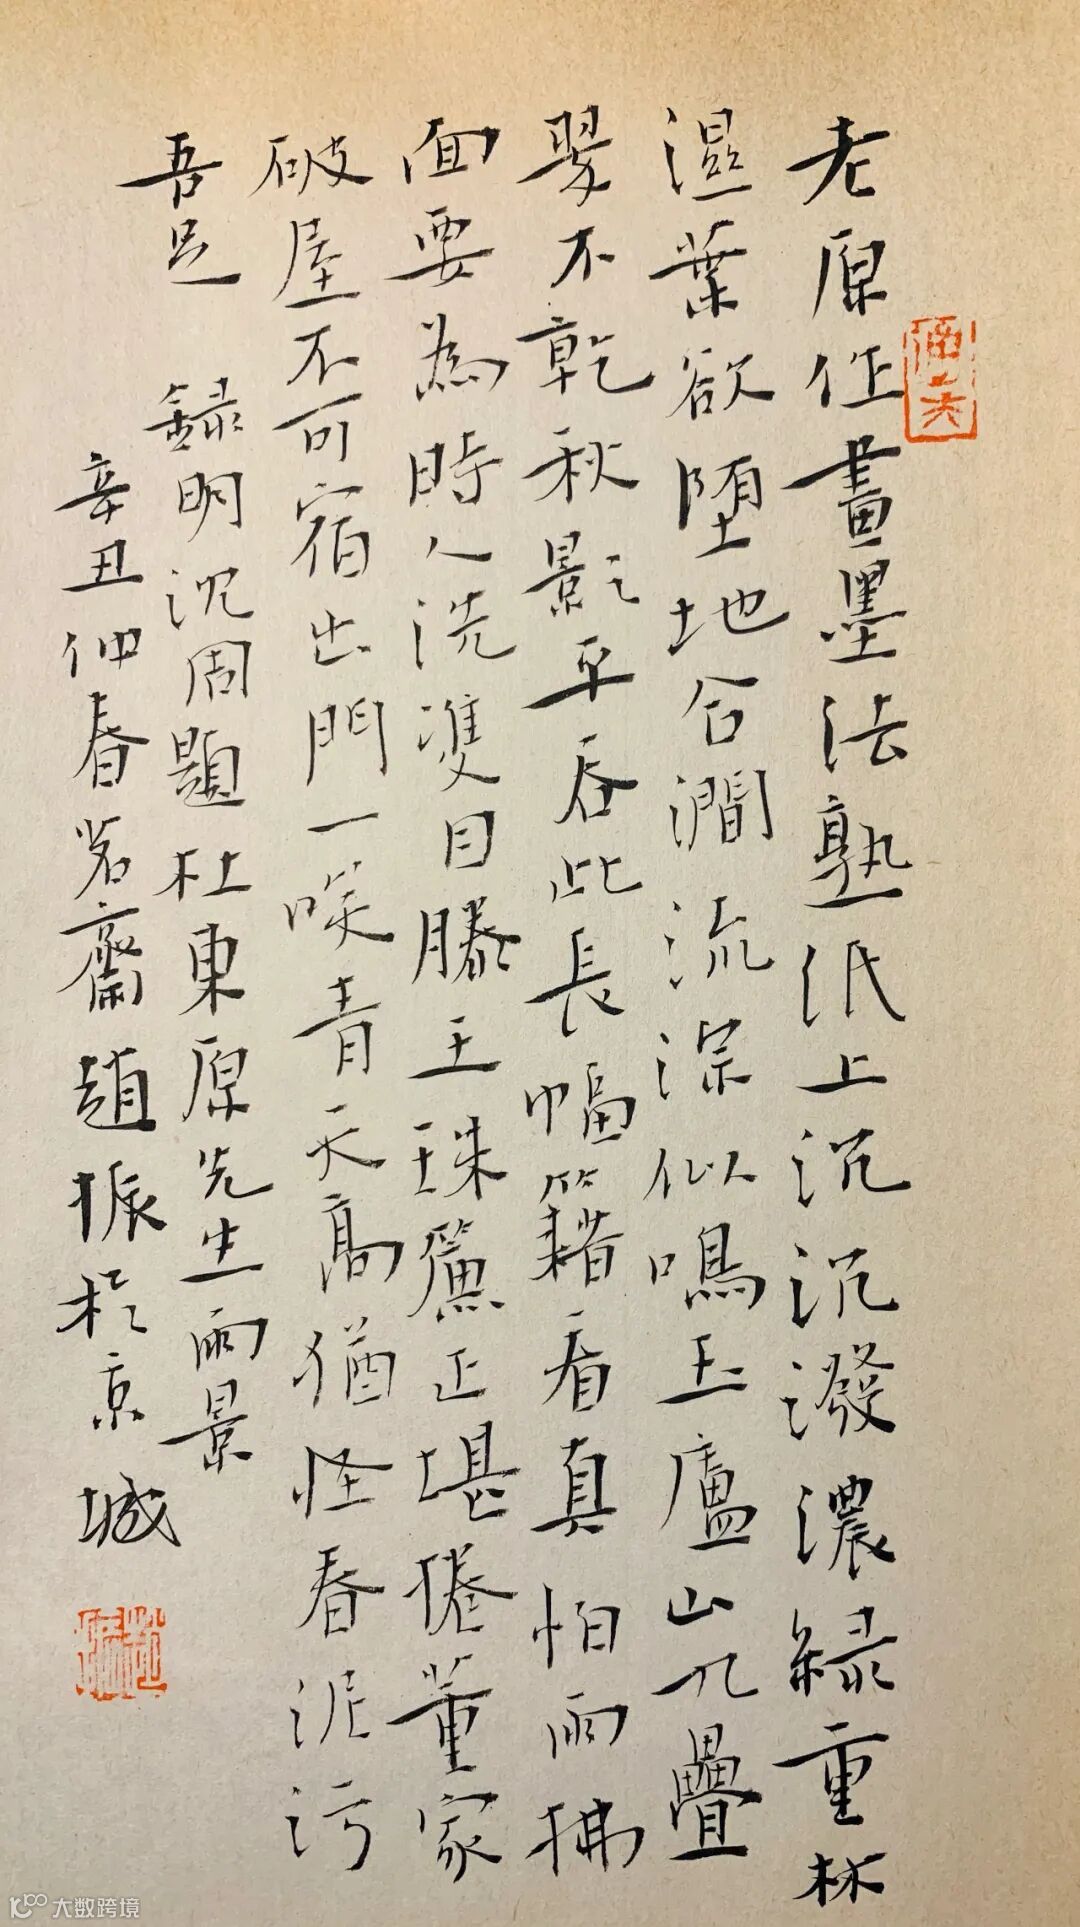 老原作畫墨法熟紙上沉沉潑濃綠重林
濕葉欲墮地合澗流淙似鳴玉廬山九疊
翠不乾秋影平吞此長幅籍看真怕雨拂
面要為時人洗雙目滕王珠簾正堪捲董家
破屋不可宿出門一笑青天高猶怪春泥污
吾足
錄明沉周題杜東原先生雨景
辛丑仲春茗齋趙振於京城
大数跨境